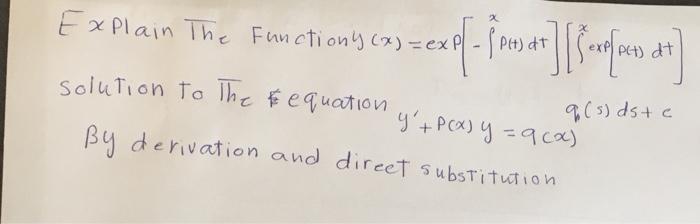 Explain The Function y(x) = exp[-∫^x P(t) dt] [∫^x exp[P(t) dt]
q(s) ds + c
solution to The equation y' + P(x) y = q(x)
By derivation and direct substitution